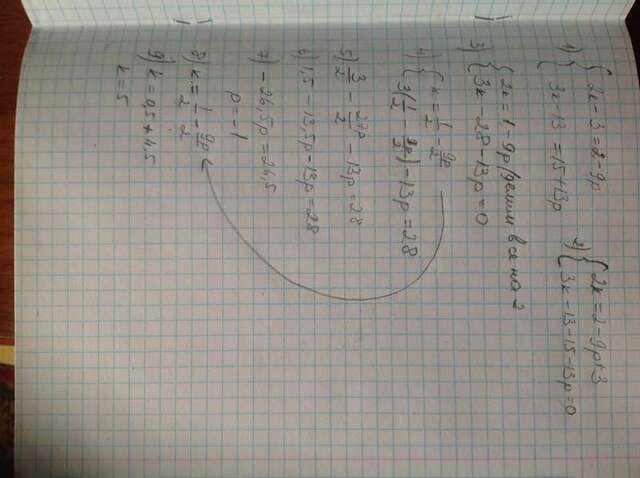 1) { 2k = 3 = 2 - 9p
3k - 13 = 15 + 13p
2) { 2k = 2 - 9p + 3
3k - 13 - 15 - 13p = 0
3) { 2k = 1 - 9p /делим все на 2
3k - 28 - 13p = 0
4) { k = 1/2 - 9p/2
3(1/2 - 9p/2) - 13p = 28
5) 3/2 - 27p/2 - 13p = 28
6) 1,5 - 13,5p - 13p = 28
7) - 26,5p = 26,5
p = -1
8) k = 1/2 - 9p/2
9) k = 0,5 + 4,5
k = 5